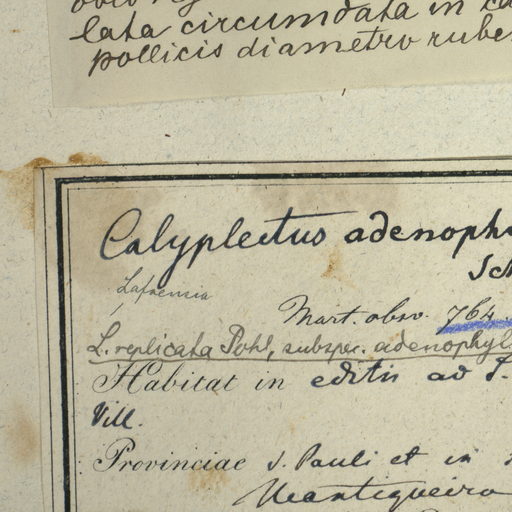 lata circumdata in
pollicis diametro rube
Calyplectus adenoph
Sch
Lafoensia
Mart. obsv. 764.
L. replicata Pohl, subspec. adenophyl
Habitat in editis ad F.
Vill.
Provinciae S. Pauli et in
Mantiqueira